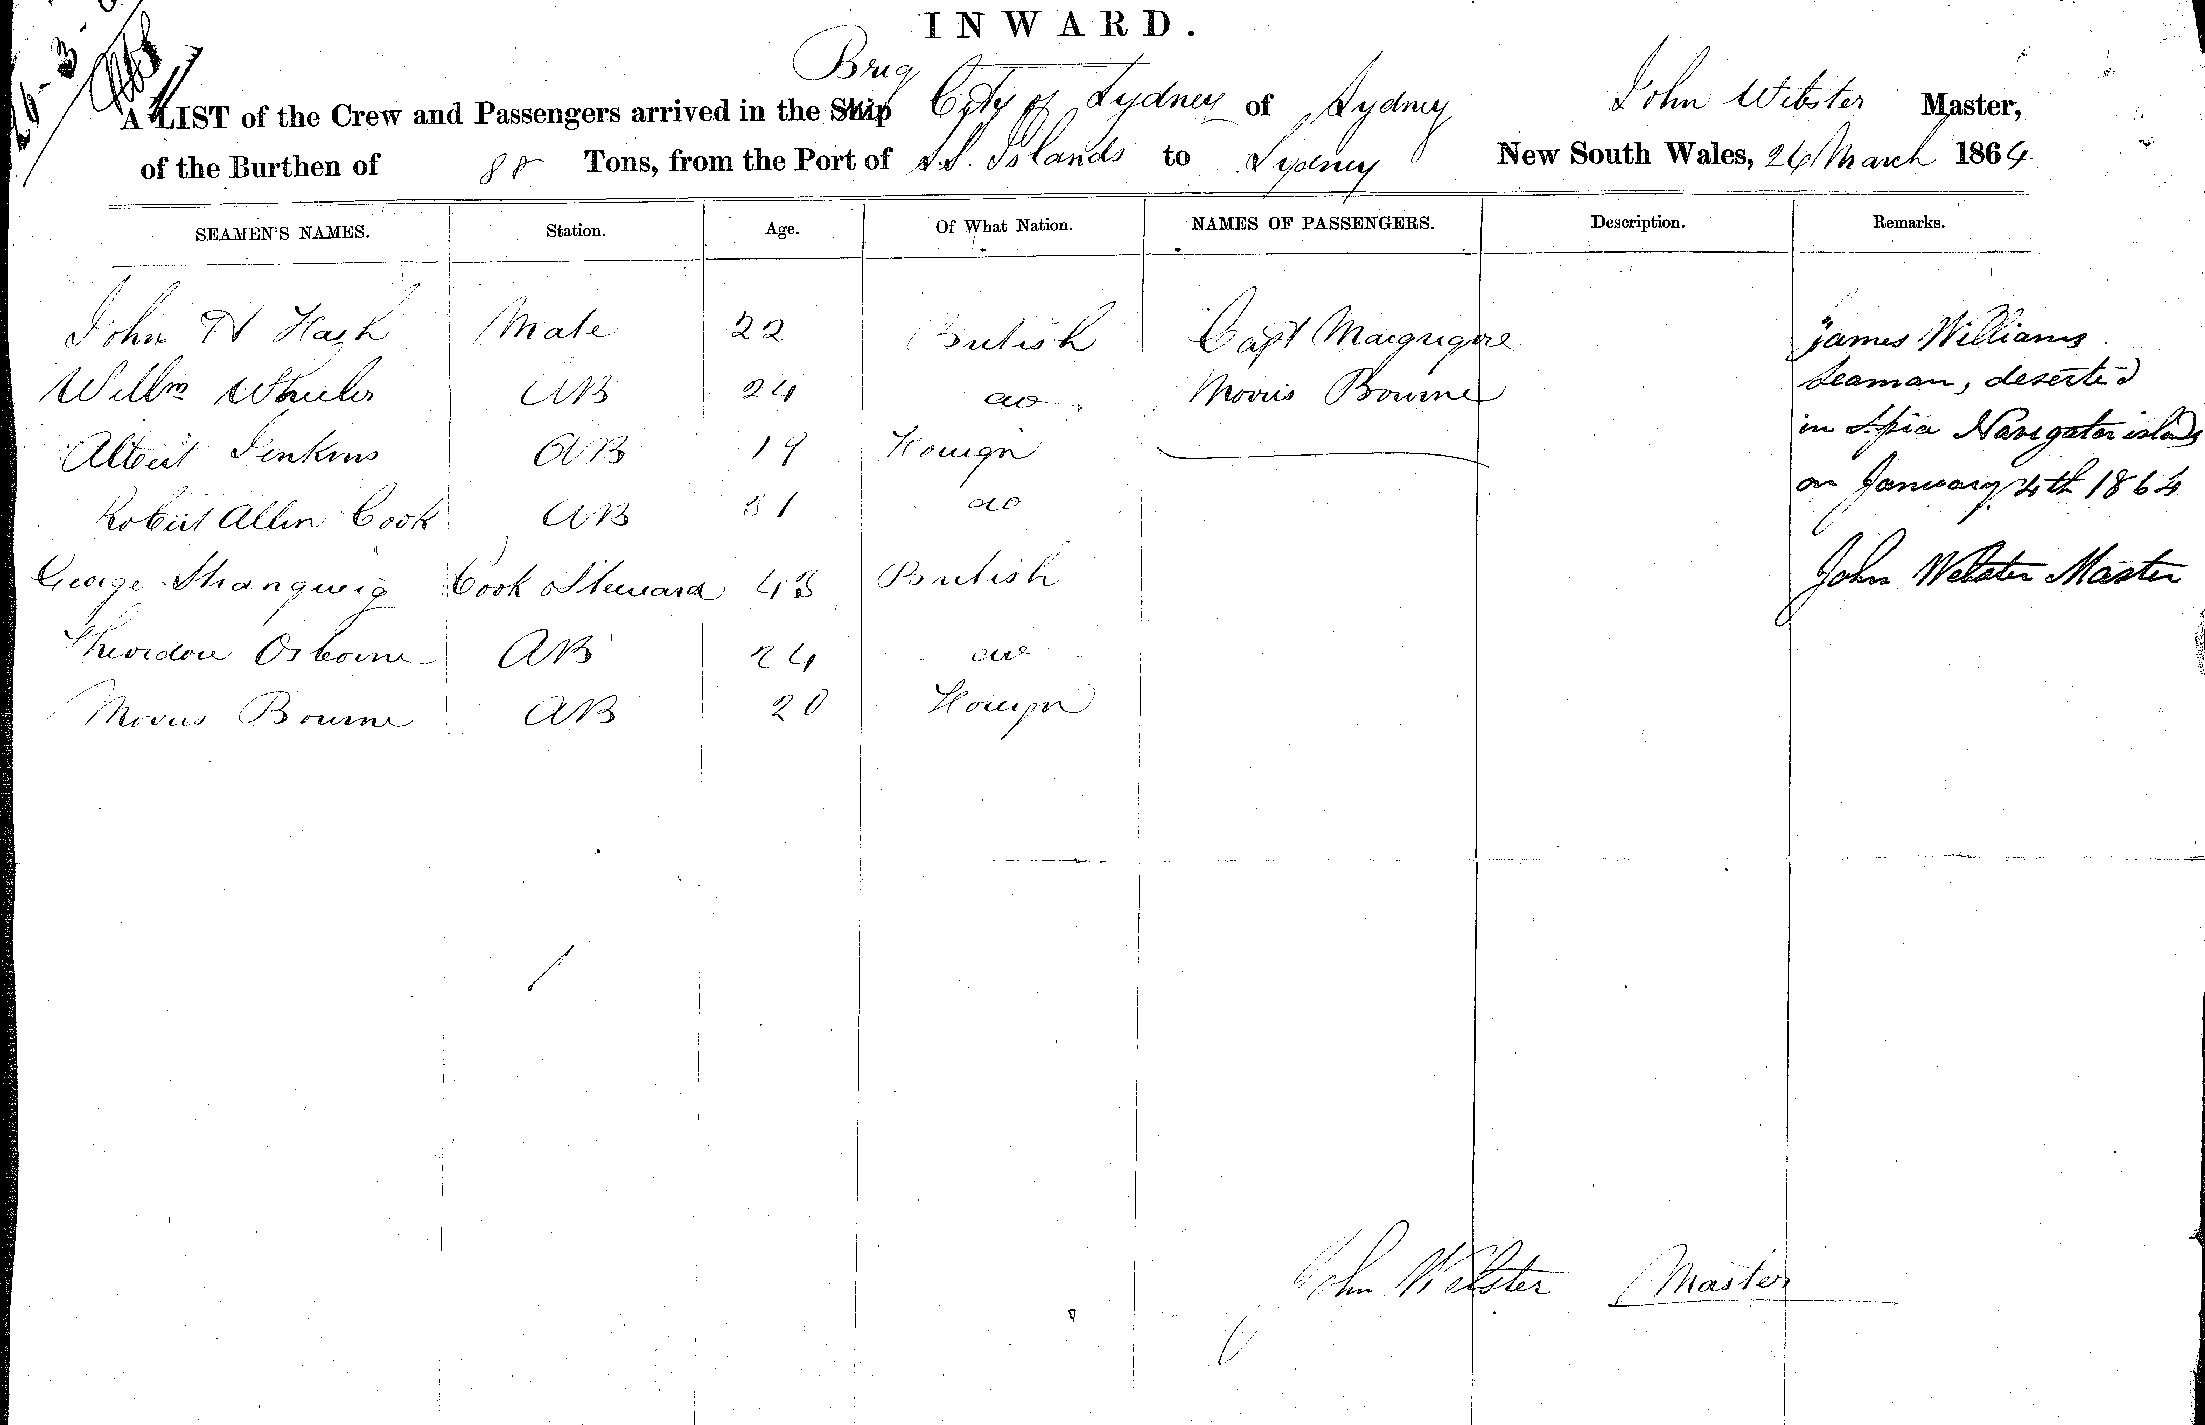 INWARD.
Brig
A LIST of the Crew and Passengers arrived in the Ship City of Sydney of Sydney John Webster Master,
of the Burthen of 88 Tons, from the Port of S.S. Islands to Sydney New South Wales, 26 March 1864
SEAMEN'S NAMES. Station. Age. Of What Nation. NAMES OF PASSENGERS. Description. Remarks.
John H Mate 22 British Capt James Williams
Willm Wheeler AB 24 do Morris Bourne seaman, deserted
Albert Jenkins AB 19 Foreign in Apia Navigator islands
Robert Allen Cook AB 31 do on January 4th 1864
George Cook & Steward 43 British John Webster Master
Theordore Osborne AB 24 do
Morris Bourne AB 20 Foreign
John Webster Master